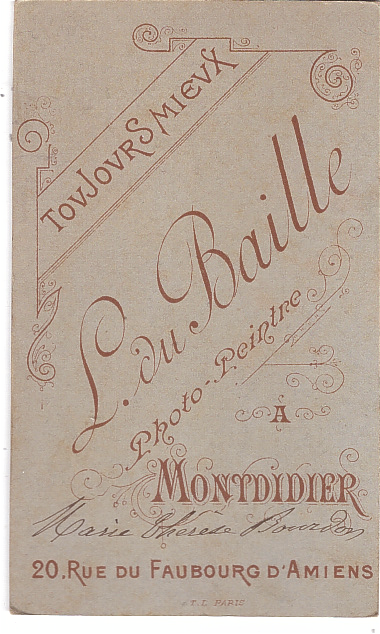 TOUJOURS MIEUX
L. du Baille
Photo-Peintre
A
MONTDIDIER
Marie Thérèse Bourdon
20. RUE DU FAUBOURG D'AMIENS
T. L. PARIS